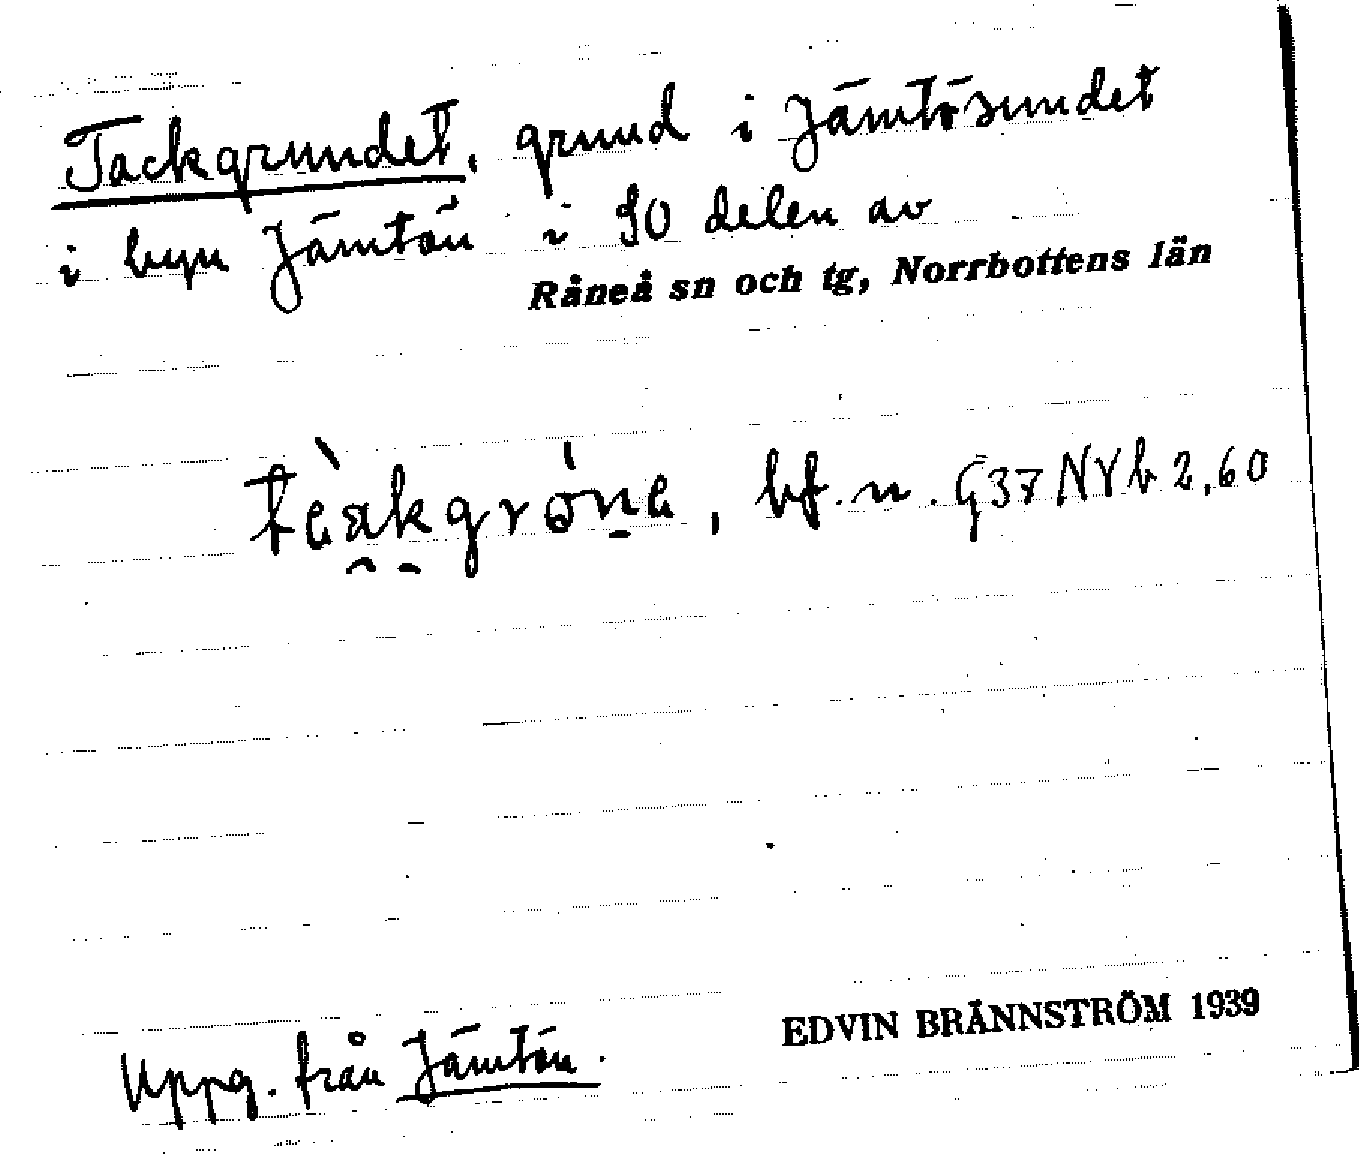 Tackgrundet, grund i Jämtösundet
i byn Jämtön i SO delen av
Råneå sn och tg, Norrbottens län
bf. n. G37NVb2,60
Uppg. från Jämtön.
EDVIN BRÄNNSTRÖM 1939